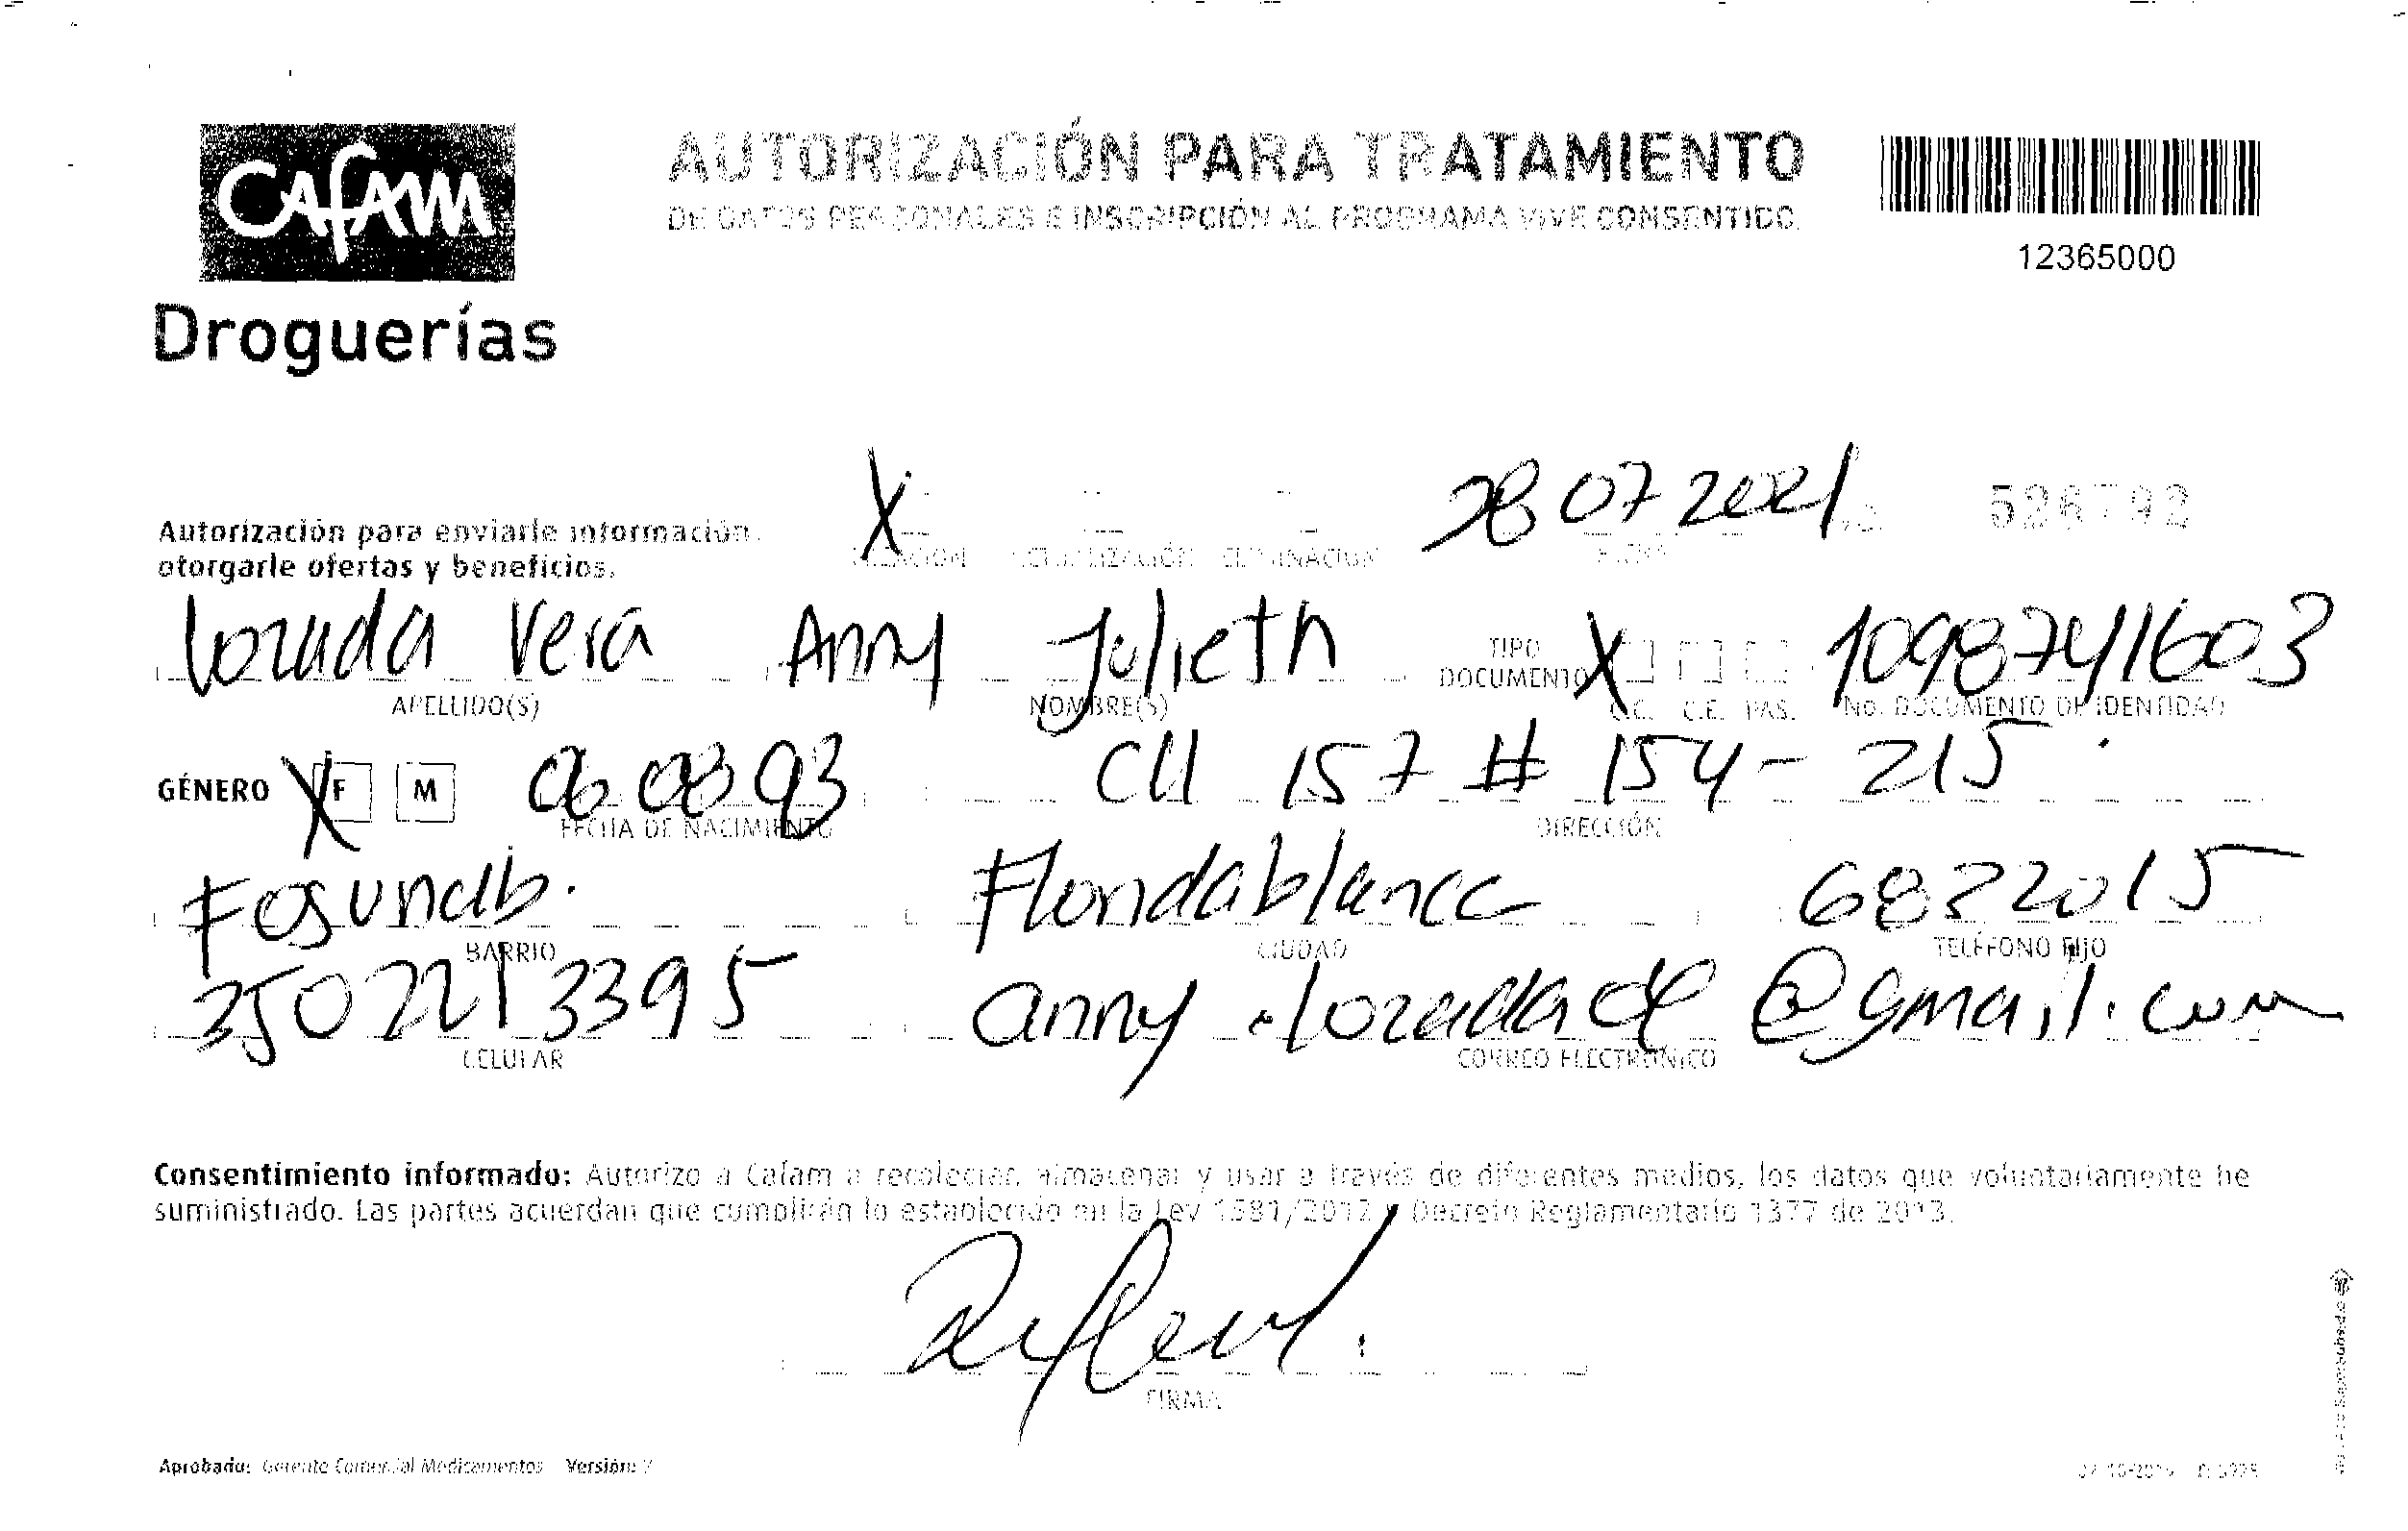 CAfAM
Droguerías
AUTORIZACIÓN PARA TRATAMIENTO
DE DATOS PERSONALES E INSCRIPCIÓN AL PROGRAMA VIVE CONSENTIDO
12365000
Autorización para enviarle información,
otorgarle ofertas y beneficios.
X ACTUALIZACIÓN ELIMINACIÓN
28 07 2021
FECHA
526792
Lozada Vera Anny Julieth TIPO DOCUMENTO X 1098741603
APELLIDO(S) NOMBRE(S) C.C. C.E. PAS. No. DOCUMENTO DE IDENTIDAD
GÉNERO X F M 06 08 93 Cll 157 # 154 - 215
FECHA DE NACIMIENTO DIRECCIÓN
Floridablanca 6822015
BARRIO CIUDAD TELÉFONO FIJO
3502213395 @gmail.com
CELULAR CORREO ELECTRÓNICO
Consentimiento informado: Autorizo a Cafam a recolectar, almacenar y usar a través de diferentes medios, los datos que voluntariamente he
suministrado. Las partes acuerdan que cumplirán lo establecido en la Ley 1581/2012 y Decreto Reglamentario 1377 de 2013.
FIRMA
Aprobado: Gerente Comercial Medicamentos Versión: